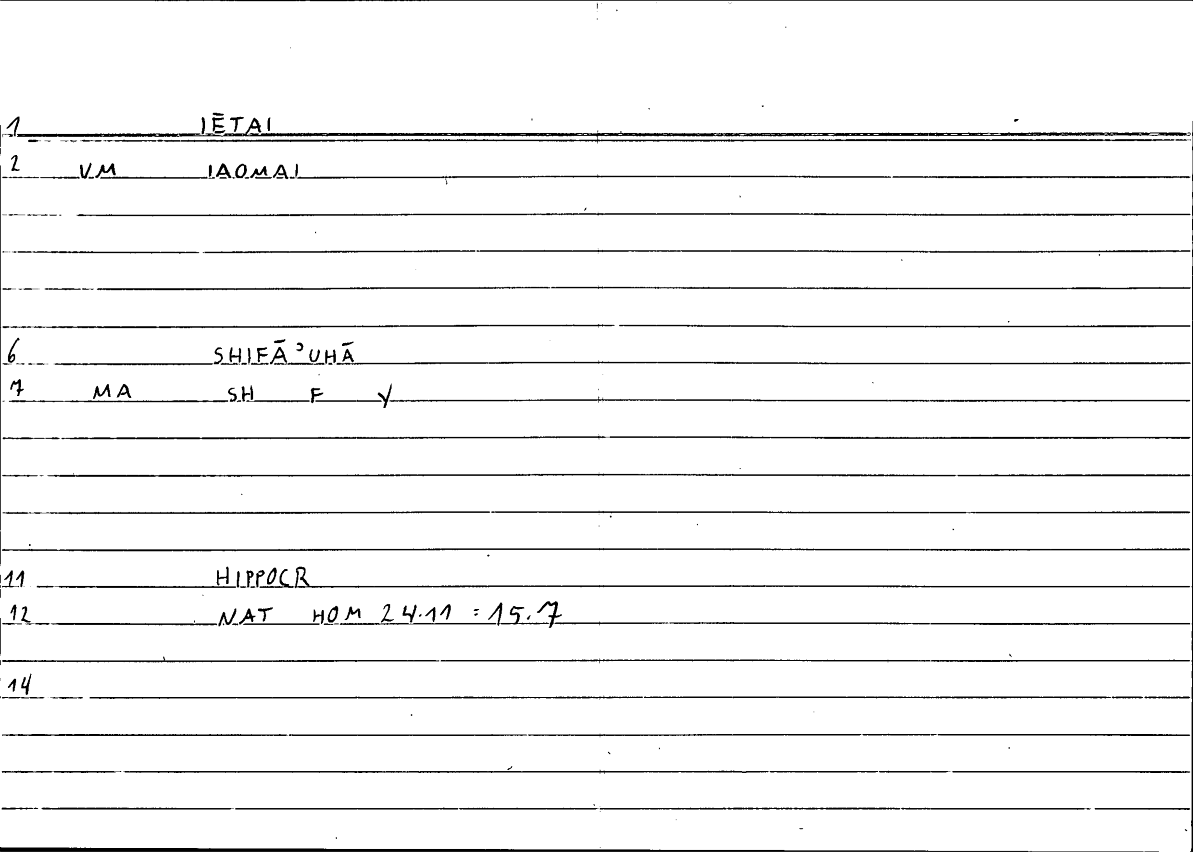 1 IĒTAI
2 VM IAOMAI
6 SHIFĀʾUHĀ
7 MA SH F Y
11 HIPPOCR
12 NAT HOM 24.11 = 15.7
14